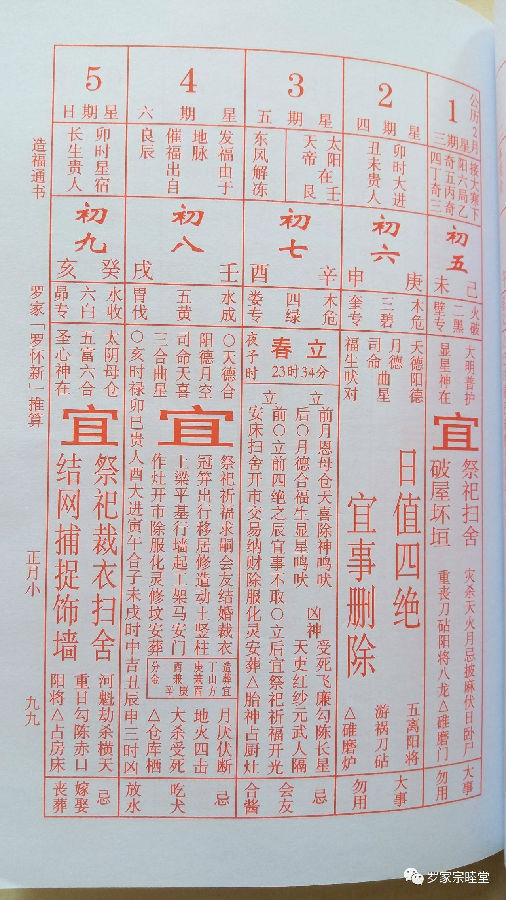 公历2月
1
星期三
接大寒下
阳六局乙
奇五丙奇
四丁奇三
初五
己
未
火破
二黑
壁专
大明普护
显星神在
宜
祭祀扫舍
破屋坏垣
灾杀天火月忌披麻伏日卧尸
重丧刀砧阳将八龙△碓磨门
大事
勿用
2
星期四
卯时大进
丑未贵人
初六
庚
申
木危
三碧
奎专
天德阳德
月德
司命曲星
福生吠对
日值四绝
宜事删除
五离阳将
游祸刀砧
△碓磨炉
大事
勿用
3
星期五
太阳在壬
天帝在艮
东风解冻
初七
辛
酉
木危
四绿
娄专
立春
23时34分
夜子时
立前月恩母仓天喜除神鸣吠
后〇月德合福生显星鸣吠
凶神
受死飞廉勾陈长星
天吏红纱元武人隔
立前〇立前四绝之辰宜事不取〇立后宜祭祀祈福开光
安床扫舍开市交易纳财除服化灵安葬△胎神占厨灶
忌
会友
合酱
4
星期六
发福由于
地脉
催福出自
良辰
初八
壬
戌
水成
五黄
胃伐
〇天德合
阳德月空
司命天喜
三合曲星
〇亥时禄卯巳贵人酉大进寅午合子未戌时中吉丑辰申三时凶
宜
祭祀祈福求嗣会友结婚裁衣
冠笄出行移居修造动土竖柱
上梁平基行墙起工架马安门
作灶开市除服化灵修坟安葬
造葬宜
丁山方
庚兼酉
酉兼庚
分金
月厌伏断
地火四击
大杀受死
△仓库栖
忌
吃犬
放水
5
星期日
卯时星宿
长生贵人
初九
癸
亥
水收
六白
昴专
太阴母仓
五富六合
圣心神在
宜
祭祀裁衣扫舍
结网捕捉饰墙
河魁劫杀横天
重日勾陈赤口
阳将△占房床
忌
嫁娶
丧葬
造福通书
罗家「罗怀新」推算
正月小
九九
罗家宗睦堂